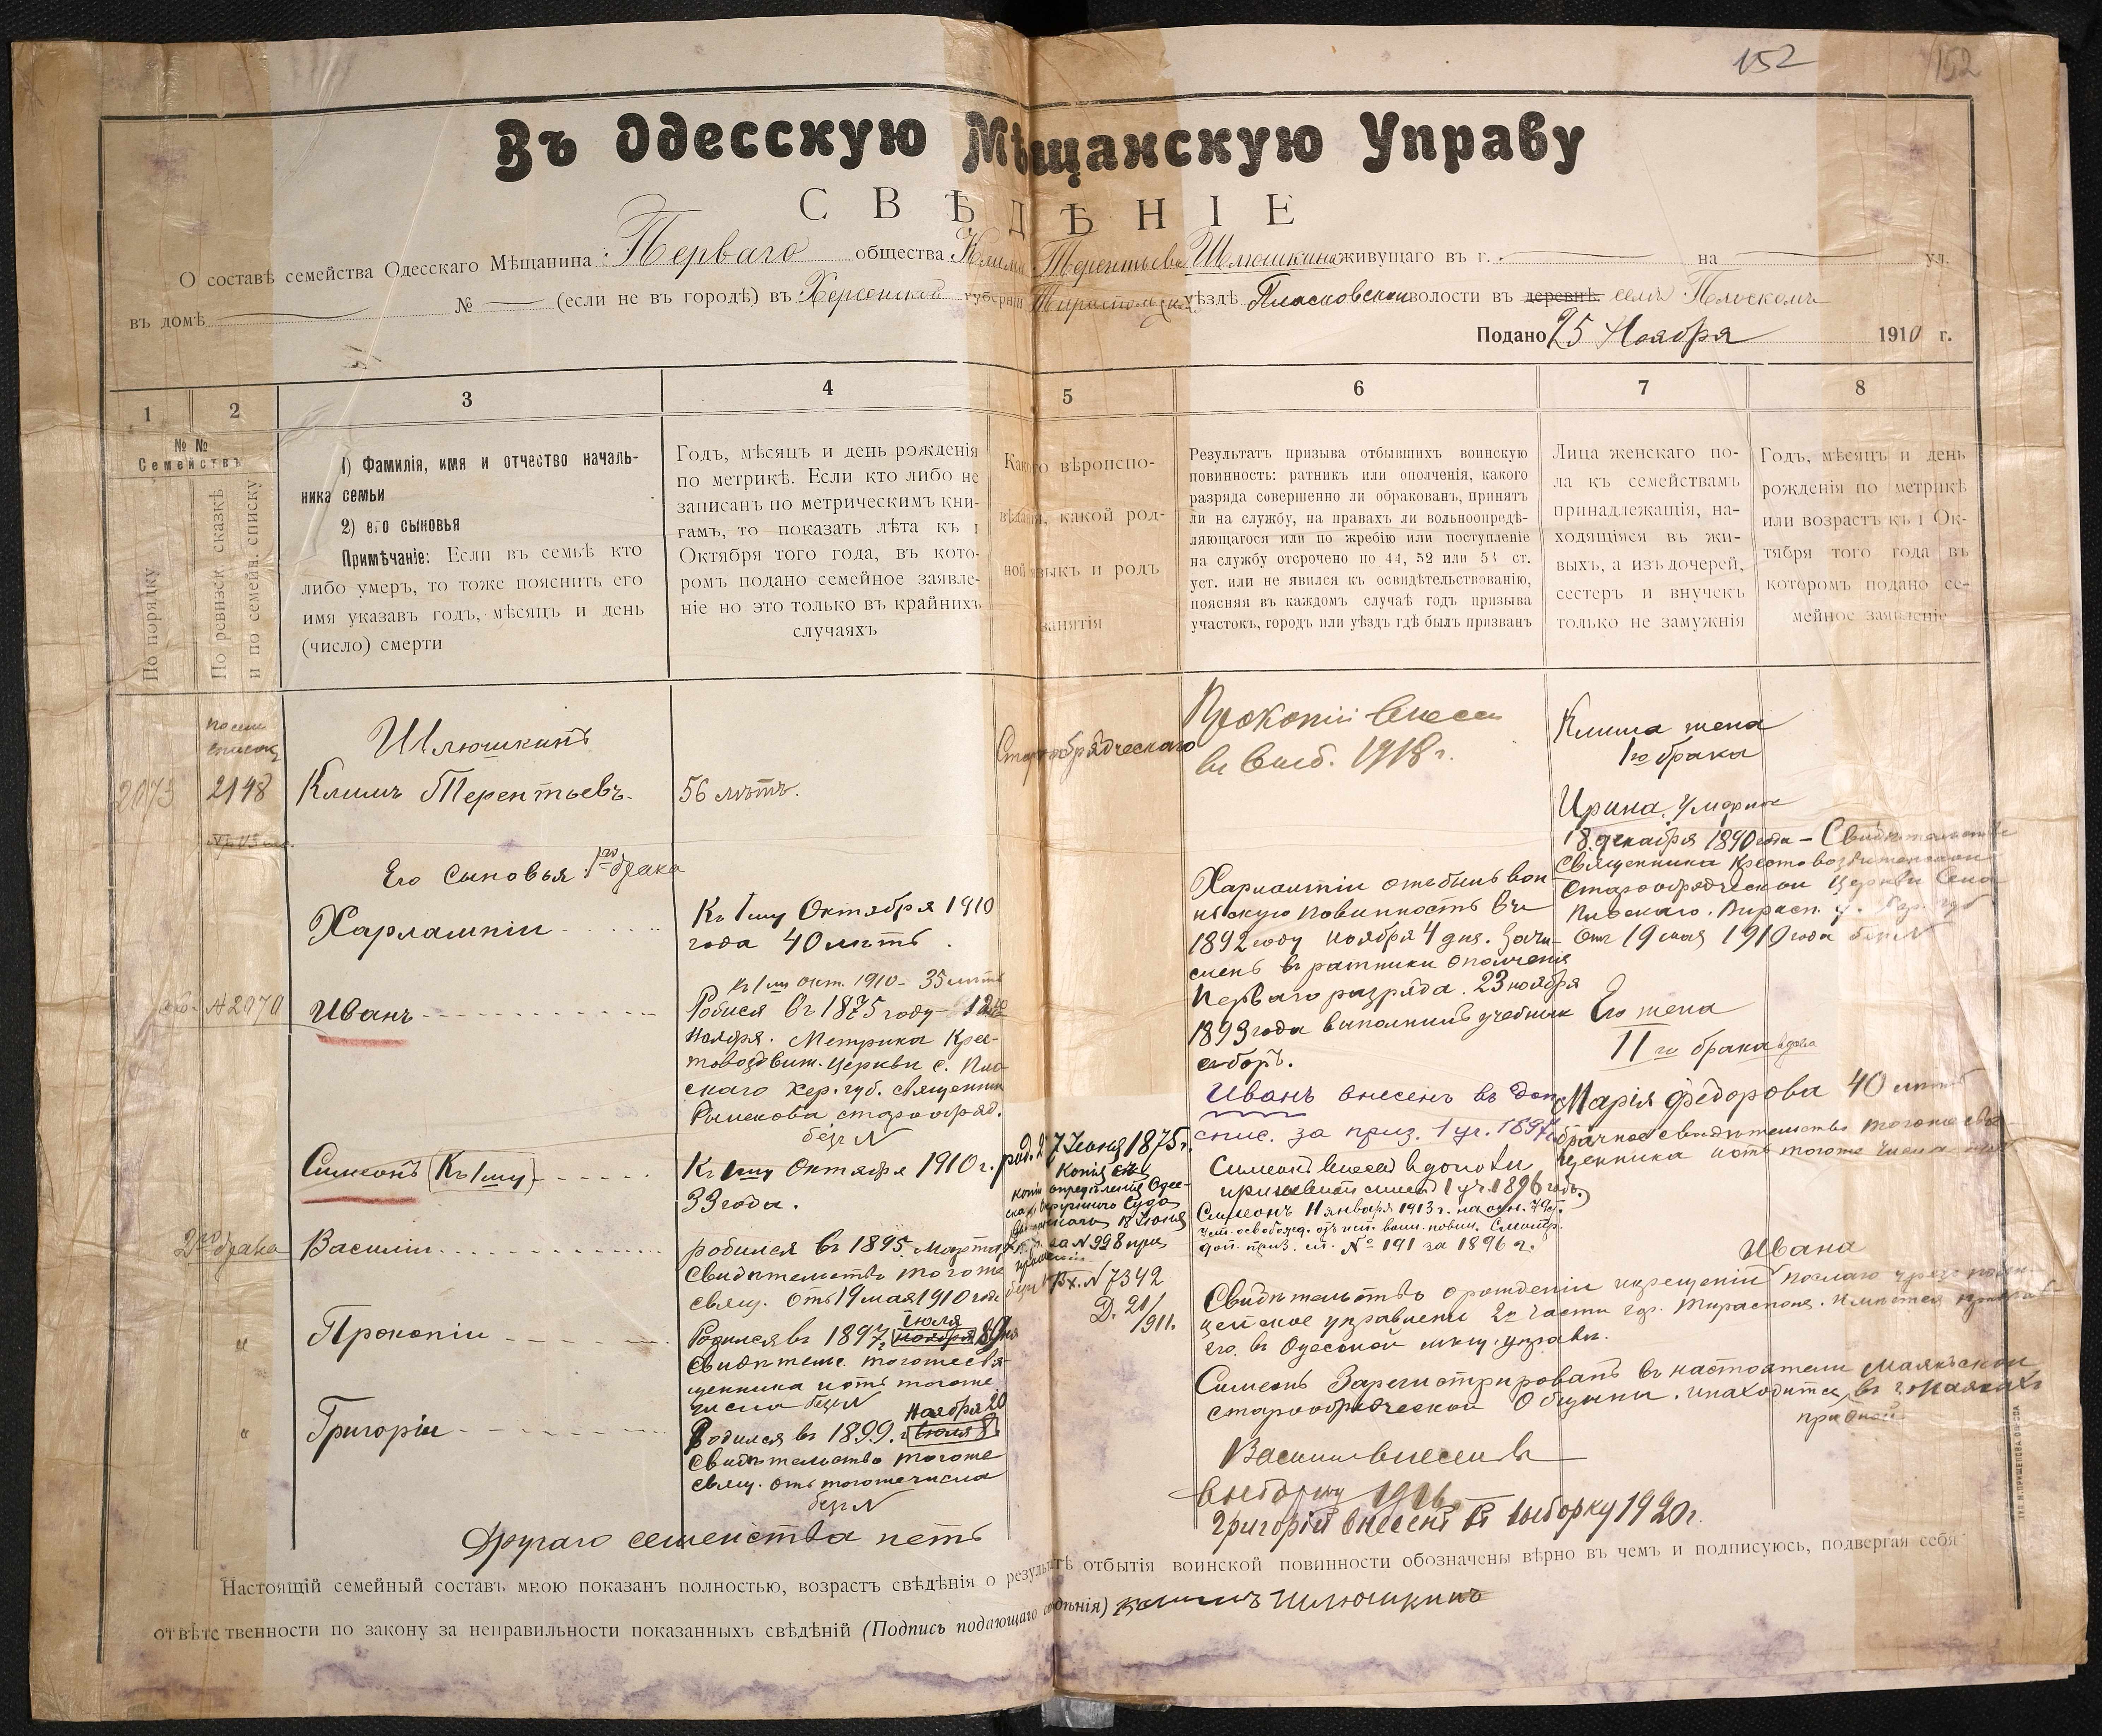 152
152
Въ Одесскую Мѣщанскую Управу
СВѢДѢНІЕ
О составѣ семейства Одесскаго Мѣщанина Перваго общества Клима Терентьева Шлюшкина живущаго въ г. на ул.
въ домѣ № (если не въ городѣ) въ Херсонской губерніи Тираспольском уѣздѣ Плосковской волости въ деревнѣ. селѣ Плоскомъ
Подано 25 Ноября 1910 г.
1
2
3
4
5
6
7
8
№ №
Семействъ
По порядку
По ревизск. сказкѣ
и по семейн. списку
1) Фамилія, имя и отчество началь-
ника семьи
2) его сыновья
Примѣчаніе: Если въ семьѣ кто
либо умеръ, то тоже пояснить его
имя указавъ годъ, мѣсяцъ и день
(число) смерти
Годъ, мѣсяцъ и день рожденія
по метрикѣ. Если кто либо не
записанъ по метрическимъ кни-
гамъ, то показать лѣта къ 1
Октября того года, въ кото-
ромъ подано семейное заявле-
ніе но это только въ крайнихъ
случаяхъ
Какого вѣроиспо-
вѣданія, какой род-
ной языкъ и родъ
занятія
Результатъ призыва отбывшихъ воинскую
повинность: ратникъ или ополченія, какого
разряда совершенно ли обракованъ, принятъ
ли на службу, на правахъ ли вольноопредѣ-
ляющагося или по жребію или поступленіе
на службу отсрочено по 44, 52 или 53 ст.
уст. или не явился къ освидѣтельствованію,
поясняя въ каждомъ случаѣ годъ призыва
участокъ, городъ или уѣздъ гдѣ былъ призванъ
Лица женскаго по-
ла къ семействамъ
принадлежащія, на-
ходящіяся въ жи-
выхъ, а изъ дочерей,
сестеръ и внучекъ
только не замужнія
Годъ, мѣсяцъ и день
рожденія по метрикѣ
или возрастъ къ 1 Ок-
тября того года въ
которомъ подано се-
мейное заявленіе
2073
2148
Шлюшкинъ
Климъ Терентьевъ
56 лѣтъ.
Старообрядческаго
Прокопій внесен
в выб. 1918 г.
Клима жена
1го брака
Ирина, умерла
18 декабря 1890 года – Свидѣтельство
священника Крестовоздвиженской
Старообрядческой церкви села
Плоскаго. Тирасп. у. Хер. губ
Отъ 19 мая 1910 года безъ N
Его Сыновья 1го брака
Харлампіи
Къ 1му Октября 1910
года 40 лѣтъ.
Харлампіи отбылъ вои-
нскую повинность въ
1892 году ноября 4 дня. Зачи-
сленъ въ ратники ополченія
Перваго разряда. 23 ноября
1893 года выполнилъ учебный
сборъ.
N 2070
Иванъ
къ 1му окт. 1910 – 35 лѣтъ
Родился въ 1875 году 12го
Ноября. Метрика Крес-
товоздвиж. церкви с. Пло-
скаго Хер. губ. священник
старообряд.
безъ N
Его жена
IIго брака вдова
Марія Федорова 40 лѣтъ
брачное свидѣтельство тогоже свя-
щенника и отъ тогоже числа
Иванъ внесенъ въ доп.
спис. за приз. 1 уч. 1897 г.
Симеонъ (Къ 1му)
Къ 1му Октября 1910 г.
33 года.
род. 27 Іюня 1875 г.
Копія
копія опредѣленія Одес-
скаго Окружнаго Суда
18 Іюня
за N 998 при
прошеніи.
Вх. N 7342
Д. 21/1911.
Симеонъ внесен в дополн
призывной списокъ 1 уч. 1896 года.
Симеонъ 11 января 1913 г. на осн.
уст. освобожд. отъ исп. воин. повин. Смотр.
доп. приз. сп. № 191 за 1896 г.
2го брака
Василіи
родился въ 1895. Марта
Свидѣтельство тогоже
свящ. отъ 19 мая 1910 года
безъ N
Ивана
Свидѣтельство о рожденіи и крещеніи послано чрезъ поли-
цейское управленіе 2й части гор. Тирасполя. Имѣется
его въ Одесской мѣщ. управѣ.
"
Прокопіи
Іюля
Родился въ 1897 г. ноября 8 дня
Свидѣтельс. тогоже свя-
щенника и отъ тогоже
числа безъ N
Симеонъ Зарегистрированъ въ настоятели Маякской
старообрядческой Общины. и находится въ г. Маякахъ
"
Григоріи
Ноября 20
Родился въ 1899. г. Іюля 8
Свидѣтельство тогоже
свящ. отъ тогоже числа
безъ N
Василіи внесенъ въ
выборку 1916
Григорій внесенъ въ выборку 1920 г.
Другаго семейства нетъ
Настоящій семейный составъ мною показанъ полностью, возрастъ свѣдѣнія о результатѣ отбытія воинской повинности обозначены вѣрно въ чемъ и подписуюсь, подвергая себя
отвѣтственности по закону за неправильности показанныхъ свѣдѣній (Подпись подающаго свѣдѣнія) Климъ Шлюшкинъ